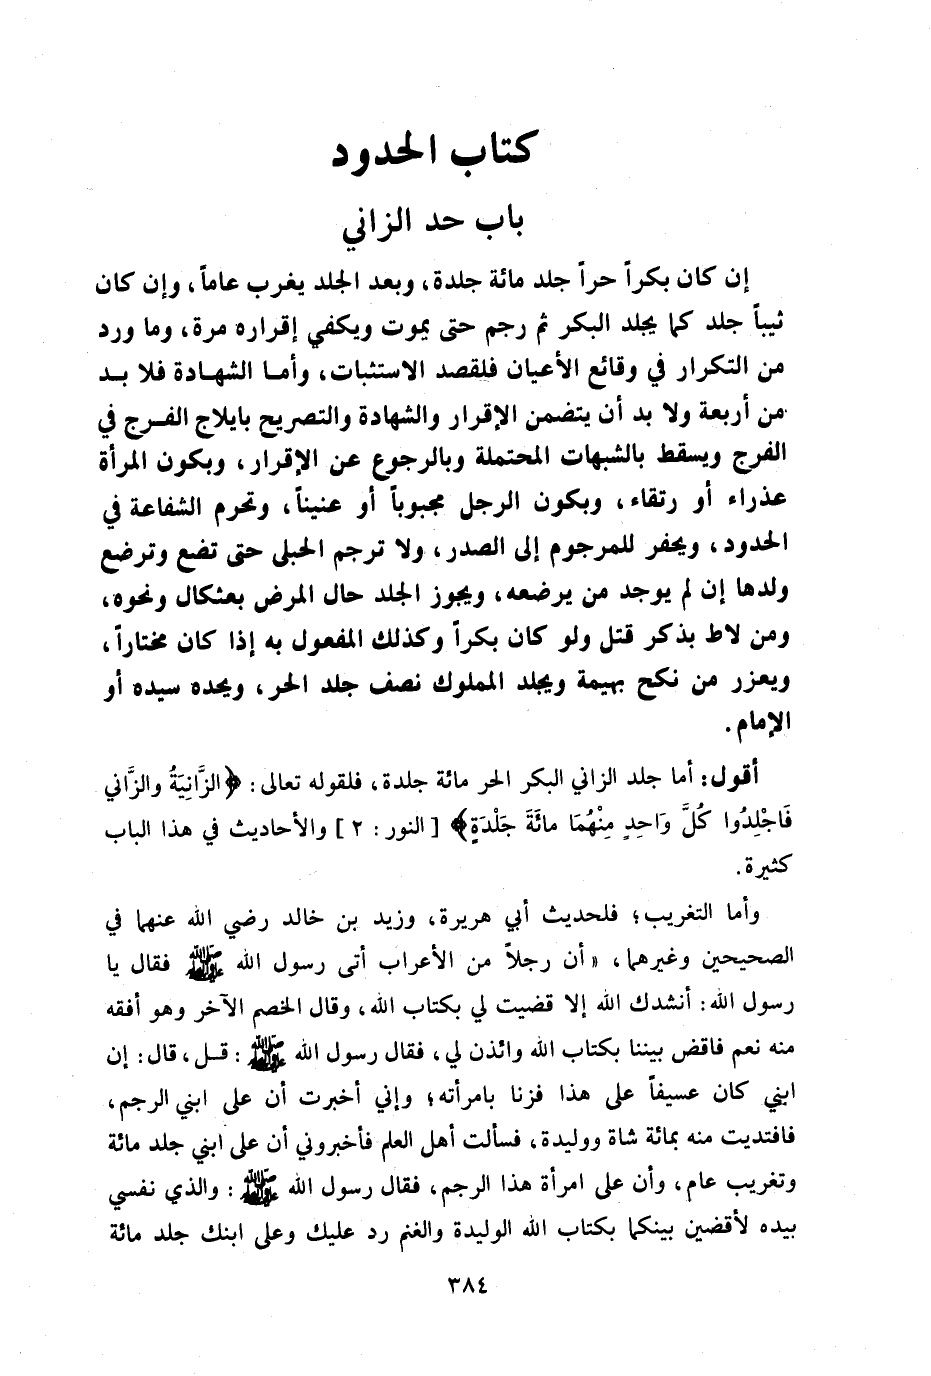 كتاب الحدود
باب حد الزاني
إن كان بكراً حراً جلد مائة جلدة، وبعد الجلد يغرب عاماً، وإن كان
ثيباً جلد كما يجلد البكر ثم رجم حتى يموت ويكفي إقراره مرة، وما ورد
من التكرار في وقائع الأعيان فلقصد الاستثبات، وأما الشهادة فلا بد
من أربعة ولا بد أن يتضمن الإقرار والشهادة والتصريح بايلاج الفرج في
الفرج ويسقط بالشبهات المحتملة وبالرجوع عن الإقرار، وبكون المرأة
عذراء أو رتقاء، وبكون الرجل مجبوباً أو عنيناً، وتحرم الشفاعة في
الحدود، ويحفر للمرجوم إلى الصدر، ولا ترجم الحبلى حتى تضع وترضع
ولدها إن لم يوجد من يرضعه، ويجوز الجلد حال المرض بعثكال ونحوه،
ومن لاط بذكر قتل ولو كان بكراً وكذلك المفعول به إذا كان مختاراً،
ويعزر من نكح بهيمة ويجلد المملوك نصف جلد الحر، ويحده سيده أو
الإمام.
أقول: أما جلد الزاني البكر الحر مائة جلدة، فلقوله تعالى: ﴿الزَّانِيَةُ والزَّاني
فَاجْلِدُوا كُلَّ وَاحِدٍ مِنْهُمَا مائَةَ جَلْدَةٍ﴾ [النور: ٢] والأحاديث في هذا الباب
كثيرة.
وأما التغريب؛ فلحديث أبي هريرة، وزيد بن خالد رضي الله عنهما في
الصحيحين وغيرهما، «أن رجلاً من الأعراب أتى رسول الله ﷺ فقال يا
رسول الله: أنشدك الله إلا قضيت لي بكتاب الله، وقال الخصم الآخر وهو أفقه
منه نعم فاقض بيننا بكتاب الله وائذن لي، فقال رسول الله ﷺ: قل، قال: إن
ابني كان عسيفاً على هذا فزنا بامرأته؛ وإني أخبرت أن على ابني الرجم،
فافتديت منه بمائة شاة ووليدة، فسألت أهل العلم فأخبروني أن على ابني جلد مائة
وتغريب عام، وأن على امرأة هذا الرجم، فقال رسول الله ﷺ: والذي نفسي
بيده لأقضين بينكما بكتاب الله الوليدة والغنم رد عليك وعلى ابنك جلد مائة
٣٨٤